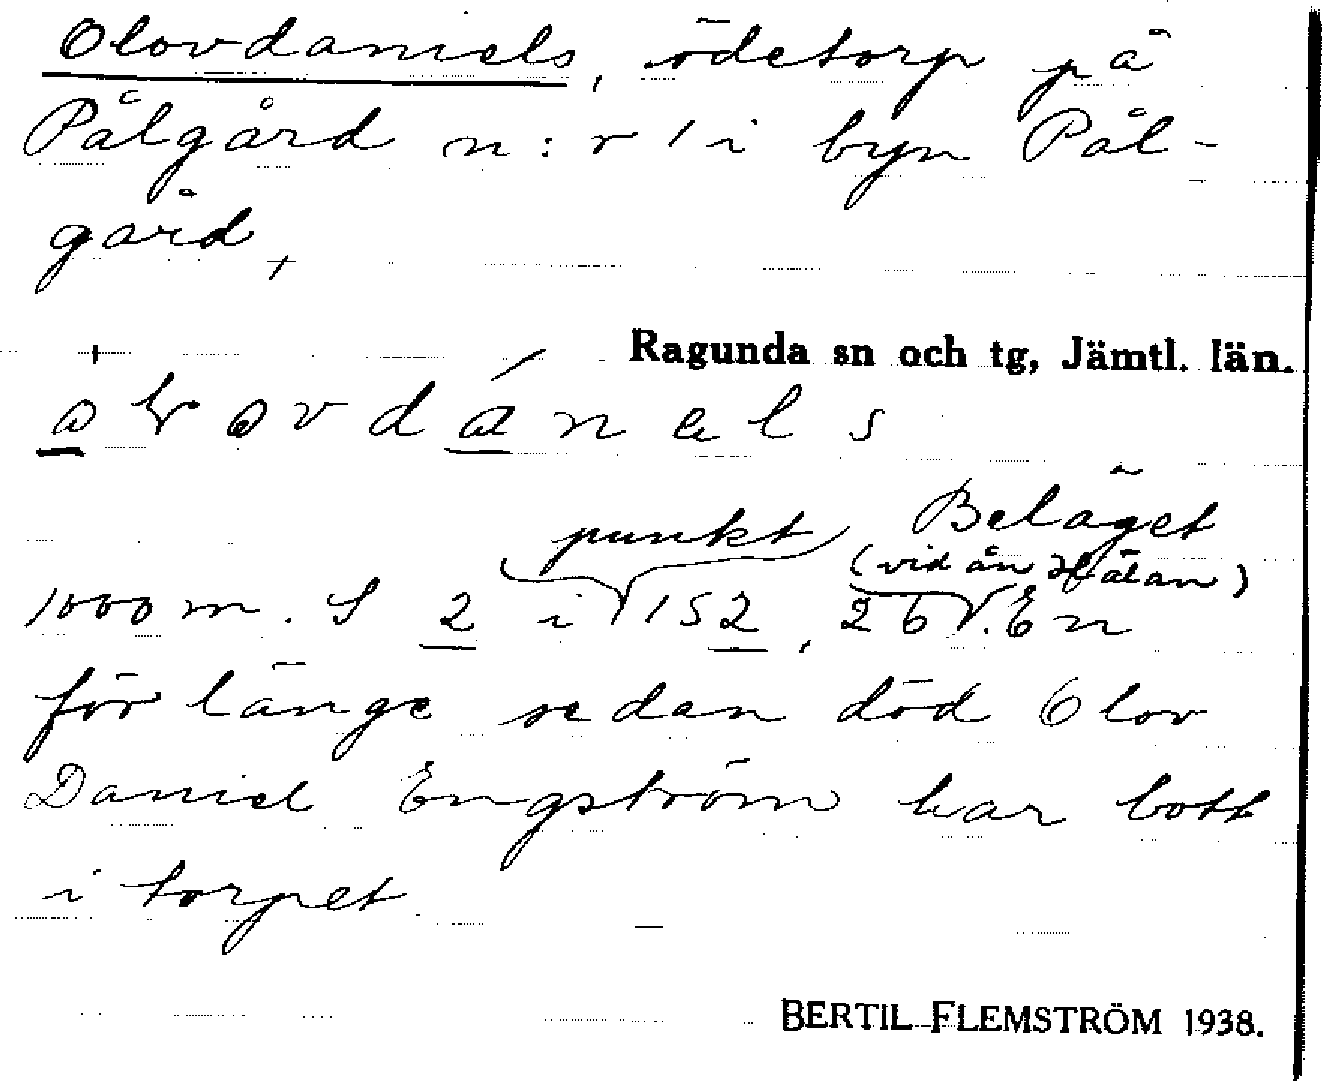 Olovdaniels, ödetorp på
Pålgård n:r 1 i byn Pål-
gård,
Ragunda sn och tg, Jämtl. län.
Beläget
punkt
(vid ån Hålan)
1000 m. S 2 i 152, 26 V. En
för länge sedan död Olov
Daniel Engström har bott
i torpet
BERTIL FLEMSTRÖM 1938.